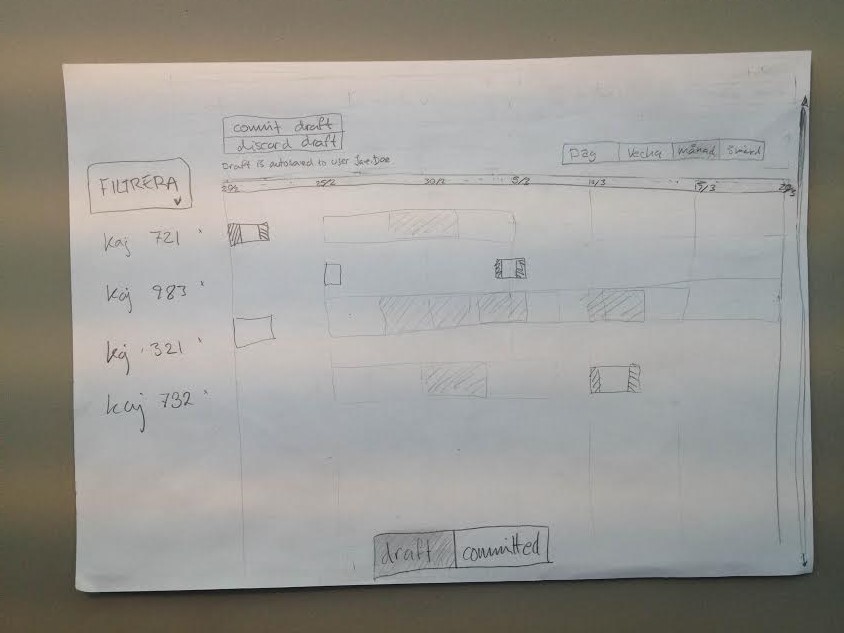 commit draft
discard draft
Draft is autosaved to user JoeDoe
Dag Vecka månad
FILTRERA
25/2 30/2 5/3 10/3 15/3
Kaj 721
Kaj 983
Kaj 321
Kaj 732
draft committed